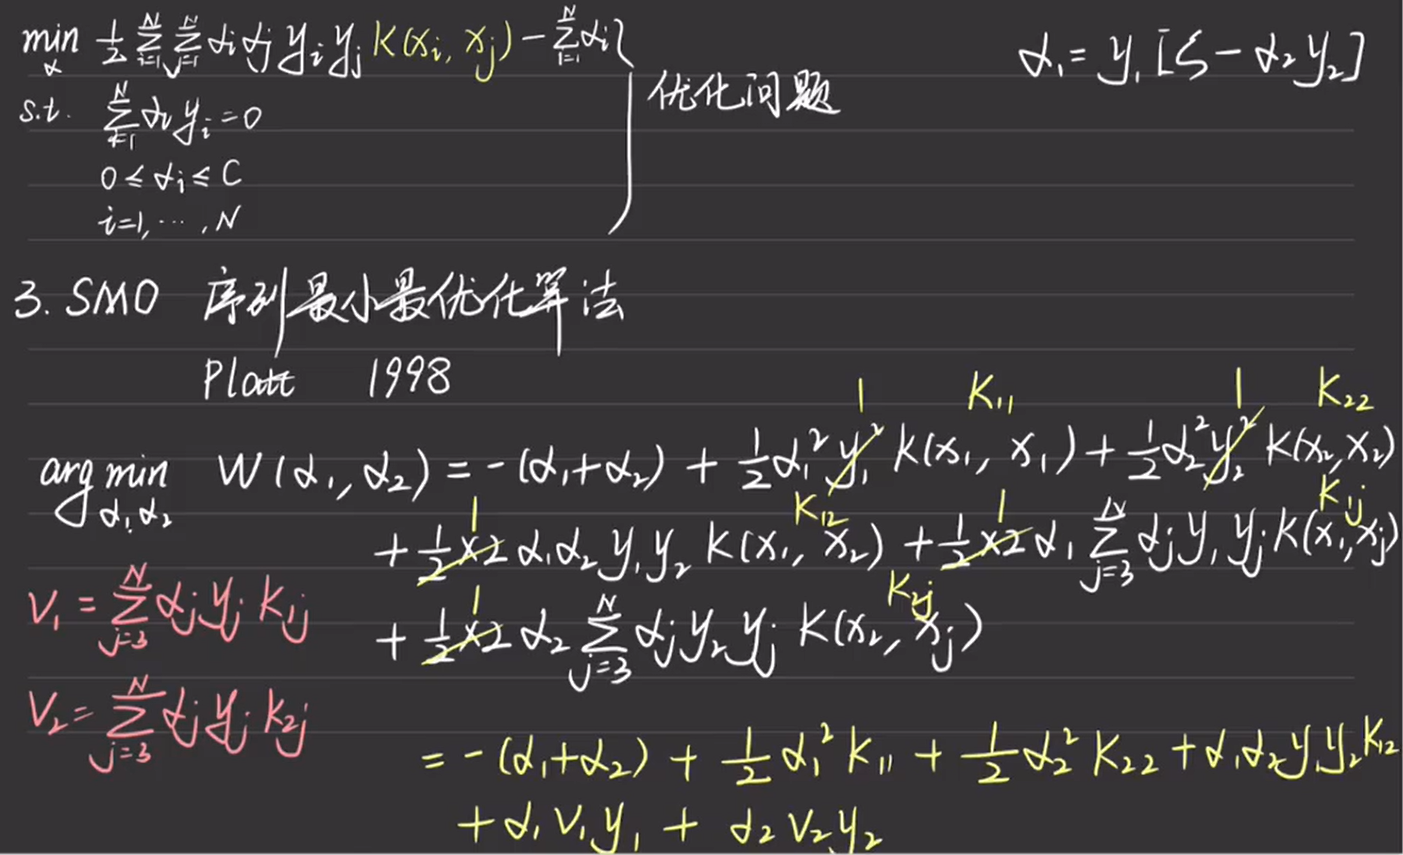 min_α ½ Σ_{i=1}^N Σ_{j=1}^N αᵢ αⱼ yᵢ yⱼ K(xᵢ, xⱼ) − Σ_{i=1}^N αᵢ
s.t. Σ_{i=1}^N αᵢ yᵢ = 0
0 ≤ αᵢ ≤ C
i=1, ⋯, N
优化问题
α₁ = y₁[ζ − α₂y₂]
3. SMO 序列最小最优化算法
Platt 1998
1 K₁₁ 1 K₂₂
arg min_{α₁α₂} W(α₁, α₂) = −(α₁+α₂) + ½α₁²y₁² K(x₁, x₁) + ½α₂²y₂² K(x₂, x₂)
1 K₁₂ 1 K₁ⱼ
+ ½×2 α₁α₂y₁y₂ K(x₁, x₂) + ½×2 α₁ Σ_{j=3}^N αⱼy₁yⱼ K(x₁, xⱼ)
1 K₂ⱼ
+ ½×2 α₂ Σ_{j=3}^N αⱼy₂yⱼ K(x₂, xⱼ)
V₁ = Σ_{j=3}^N αⱼyⱼ K₁ⱼ
V₂ = Σ_{j=3}^N αⱼyⱼ K₂ⱼ
= −(α₁+α₂) + ½ α₁² K₁₁ + ½ α₂² K₂₂ + α₁α₂y₁y₂K₁₂
+ α₁V₁y₁ + α₂V₂y₂